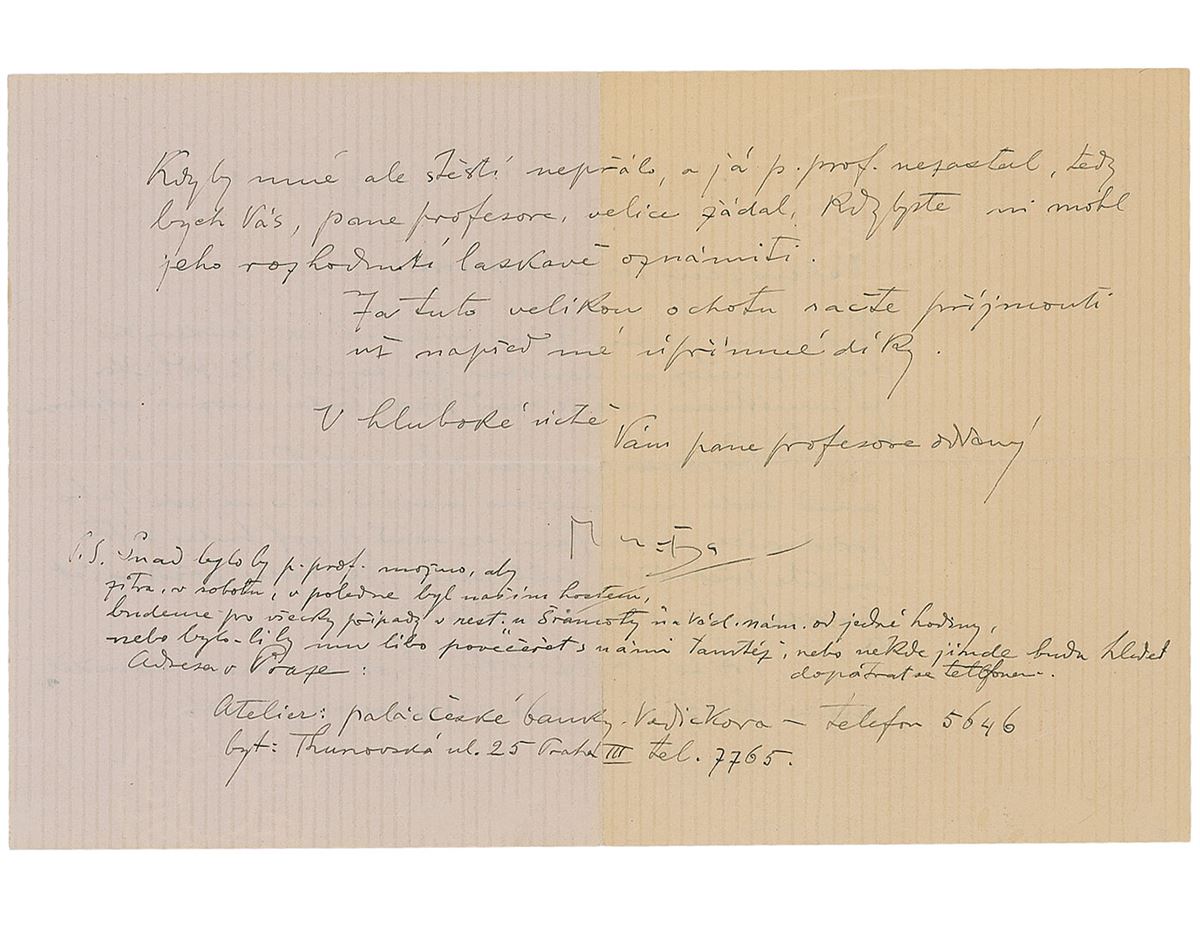 Kdyby mně ale stěstí nepřálo, a já p. prof. nezastal, tedy
bych Vás, pane profesore, velice žádal, kdybyste mi mohl
jeho rozhodnutí laskavě oznámiti.
Za tuto velikou ochotu račte příjmouti
už napřed mé úpřímné díky.
V hluboké úctě
Vám pane profesore oddaný
Mucha
P.S. Snad bylo by p. prof. možno, aby
zítra, v sobotu, v poledne byl naším hostem,
budeme pro všecky případy v rest. u Šrámoty na Václ. nám. od jedné hodiny,
nebo bylo-li by mu libo povečeřet s námi tamtéž, nebo někde jinde budu hledět
dopátrat se telefonem.
Adresa v Praze:
Atelier: palác České banky. Vodičkova – telefon 5646
byt: Thunovská ul. 25 Praha III tel. 7765.